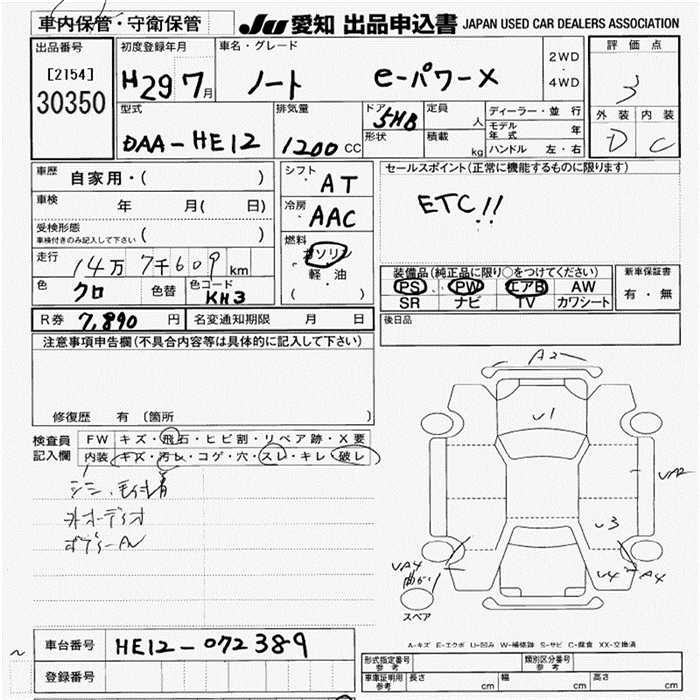 車内保管・守衛保管
JU 愛知 出品申込書 JAPAN USED CAR DEALERS ASSOCIATION
出品番号
[2154]
30350
初度登録年月
H29 7月
車名・グレード
ノート e-パワーX
2WD
・
4WD
評価点
3
外装 内装
D C
型式
DAA-HE12
排気量
1200 CC
ドア 5HB
形状
定員 人
積載 kg
ディーラー・並行
モデル年式 年
ハンドル 左・右
車歴 自家用・( )
車検 年 月( 日)
受検形態
車検付きのみ記入して下さい ( )
走行 14万7千609 km
色 クロ 色替 色コード KH3
シフト AT
冷房 AAC
燃料
ガソリン
・
軽・油
( )
セールスポイント(正常に機能するものに限ります)
ETC!!
装備品(純正品に限り○をつけてください)
PS PW エアB AW
SR ナビ TV カワシート
新車保証書
有・無
R券 7,890 円 名変通知期限 月 日
後日品
注意事項申告欄(不具合内容等は具体的に記入して下さい)
修復歴 有 〔箇所 〕
検査員
記入欄
FW キズ・飛石・ヒビ割・リペア跡・X要
内装 キズ・汚レ・コゲ・穴・スレ・キレ・破レ
外オーディオ
A2
U1
U3
U4
A4
UA4
スペア
A-キズ E-エクボ U-凹み W-補修跡 S-サビ C-腐食 XX-交換済
車台番号 HE12-072389
登録番号
形式指定番号
参考
類別区分番号
参考
車庫証明用
参考
長さ cm 幅 cm 高さ cm